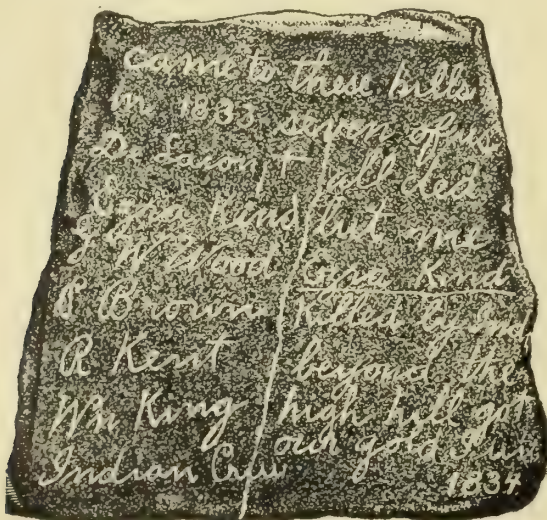 came to these hills
in 1833 seven of us
De Lacompt
Ezra Kind
G W Wood
Brown
R Kent
Wm King
Indian Crow
all ded
but me
Ezra Kind
Killed by Ind
beyond the
high hill got
our gold June
1834